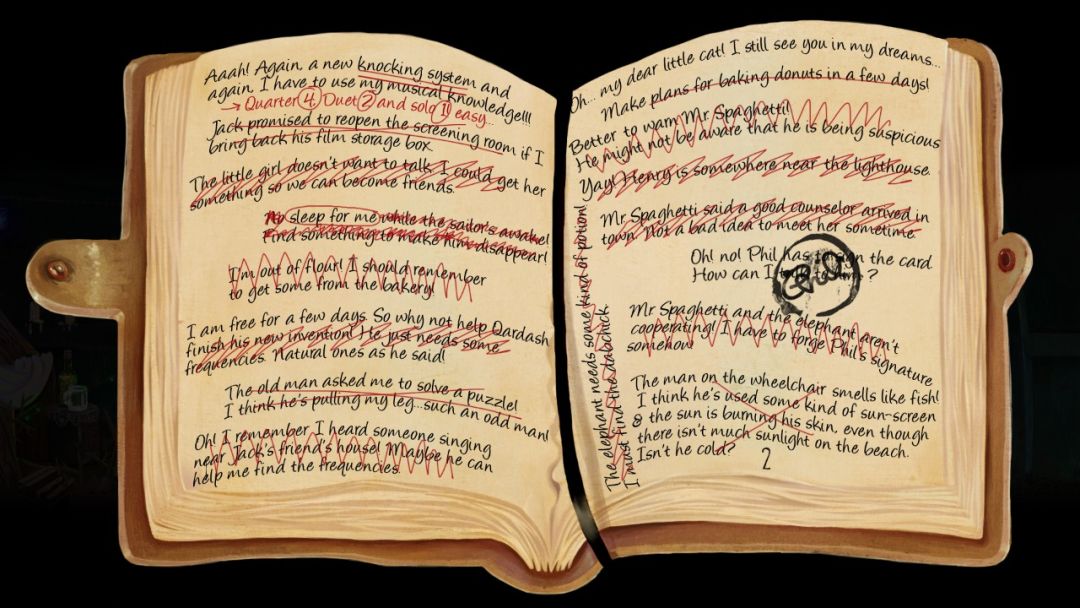 Aaah! Again, a new knocking system and
again, I have to use my musical knowledge!!!
→ Quarter 4 Duet 2 and solo 1 easy...
Jack promised to reopen the screening room if I
bring back his film storage box.
The little girl doesn't want to talk. I could get her
something so we can become friends.
No sleep for me while the sailor's awake!
Find something to make him disappear!
I'm out of flour! I should remember
to get some from the bakery!
I am free for a few days. So why not help Dardash
finish his new invention! He just needs some
frequencies. Natural ones as he said!
The old man asked me to solve a puzzle!
I think he's pulling my leg...such an odd man!
Oh! I remember I heard someone singing
near Jack's friend's house! Maybe he can
help me find the frequencies.
Oh... my dear little cat! I still see you in my dreams...
Make plans for baking donuts in a few days!
Better to warn Mr. Spaghetti!
He might not be aware that he is being suspicious
Yay! Henry is somewhere near the lighthouse.
Mr. Spaghetti said a good counselor arrived in
town. Not a bad idea to meet her sometime.
Oh! no! Phil has to sign the card.
How can I ?
Mr Spaghetti and the elephant aren't
cooperating! I have to forge Phil's signature
somehow!
The man on the wheelchair smells like fish!
I think he's used some kind of sun-screen
& the sun is burning his skin, even though
there isn't much sunlight on the beach.
Isn't he cold?
The elephant needs some kind of potion!
I must find the dabchick.
2